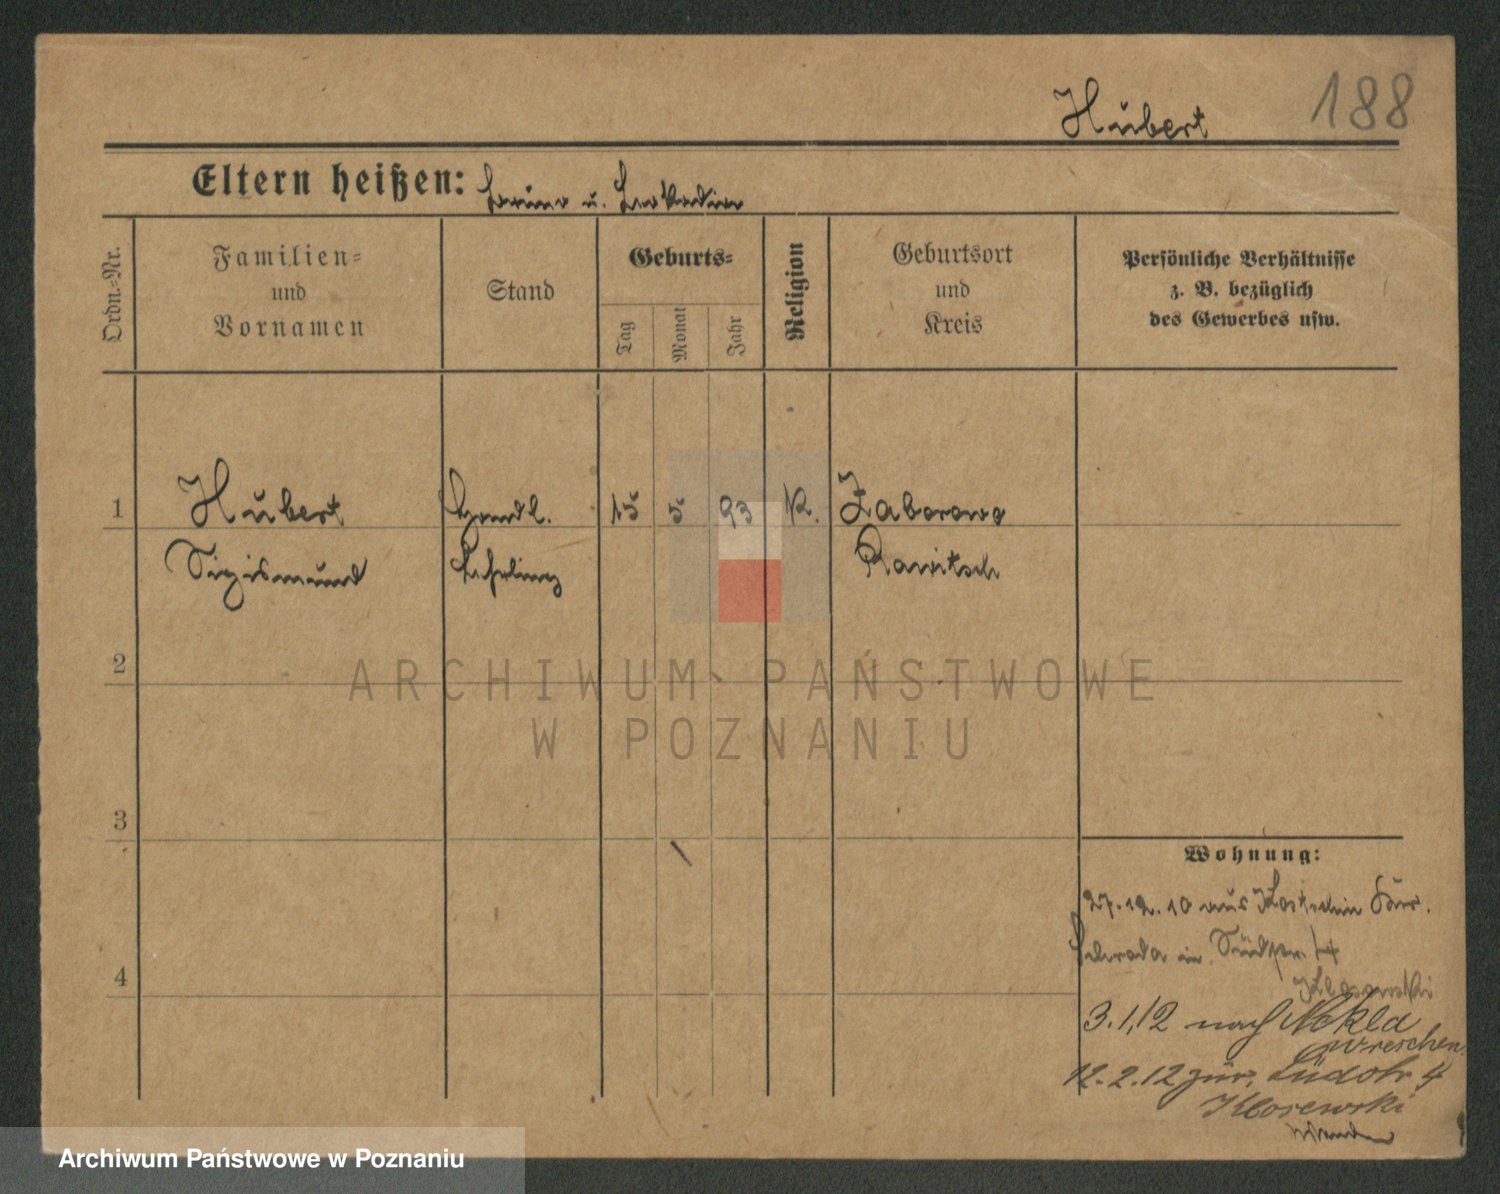 Hubert 188
Eltern heißen: u. Leokadia
Ordn.-Nr.
Familien-
und
Vornamen
Stand
Geburts-
Tag
Monat
Jahr
Religion
Geburtsort
und
Kreis
Persönliche Verhältnisse
z. B. bezüglich
des Gewerbes usw.
1 Hubert Handl. 15 5 93 K. Zaborowo
Sigismund Lehrling Rawitsch
2
ARCHIWUM PAŃSTWOWE
W POZNANIU
3
Wohnung:
27.12.10 aus Kostschin
Schroda in 4
4
Klosowski
3.1.12 nach Nekla
Wreschen
12.2.12 zur. 4
Klosewski
Archiwum Państwowe w Poznaniu